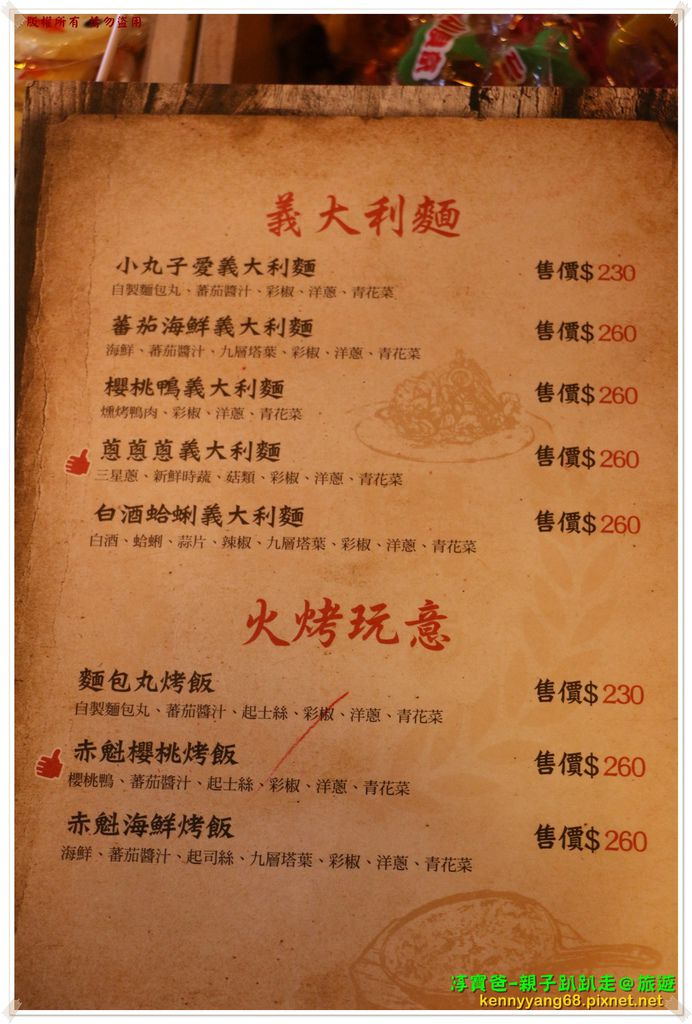 版權所有 請勿盜圖
義大利麵
小丸子愛義大利麵 售價$230
自製麵包丸、蕃茄醬汁、彩椒、洋蔥、青花菜
蕃茄海鮮義大利麵 售價$260
海鮮、蕃茄醬汁、九層塔葉、彩椒、洋蔥、青花菜
櫻桃鴨義大利麵 售價$260
燻烤鴨肉、彩椒、洋蔥、青花菜
蔥蔥蔥義大利麵 售價$260
三星蔥、新鮮時蔬、菇類、彩椒、洋蔥、青花菜
白酒蛤蜊義大利麵 售價$260
白酒、蛤蜊、蒜片、辣椒、九層塔葉、彩椒、洋蔥、青花菜
火烤玩意
麵包丸烤飯 售價$230
自製麵包丸、蕃茄醬汁、起士絲、彩椒、洋蔥、青花菜
赤魁櫻桃烤飯 售價$260
櫻桃鴨、蕃茄醬汁、起士絲、彩椒、洋蔥、青花菜
赤魁海鮮烤飯 售價$260
海鮮、蕃茄醬汁、起司絲、九層塔葉、彩椒、洋蔥、青花菜
淳寶爸-親子趴趴走@旅遊
kennyyang68.pixnet.net